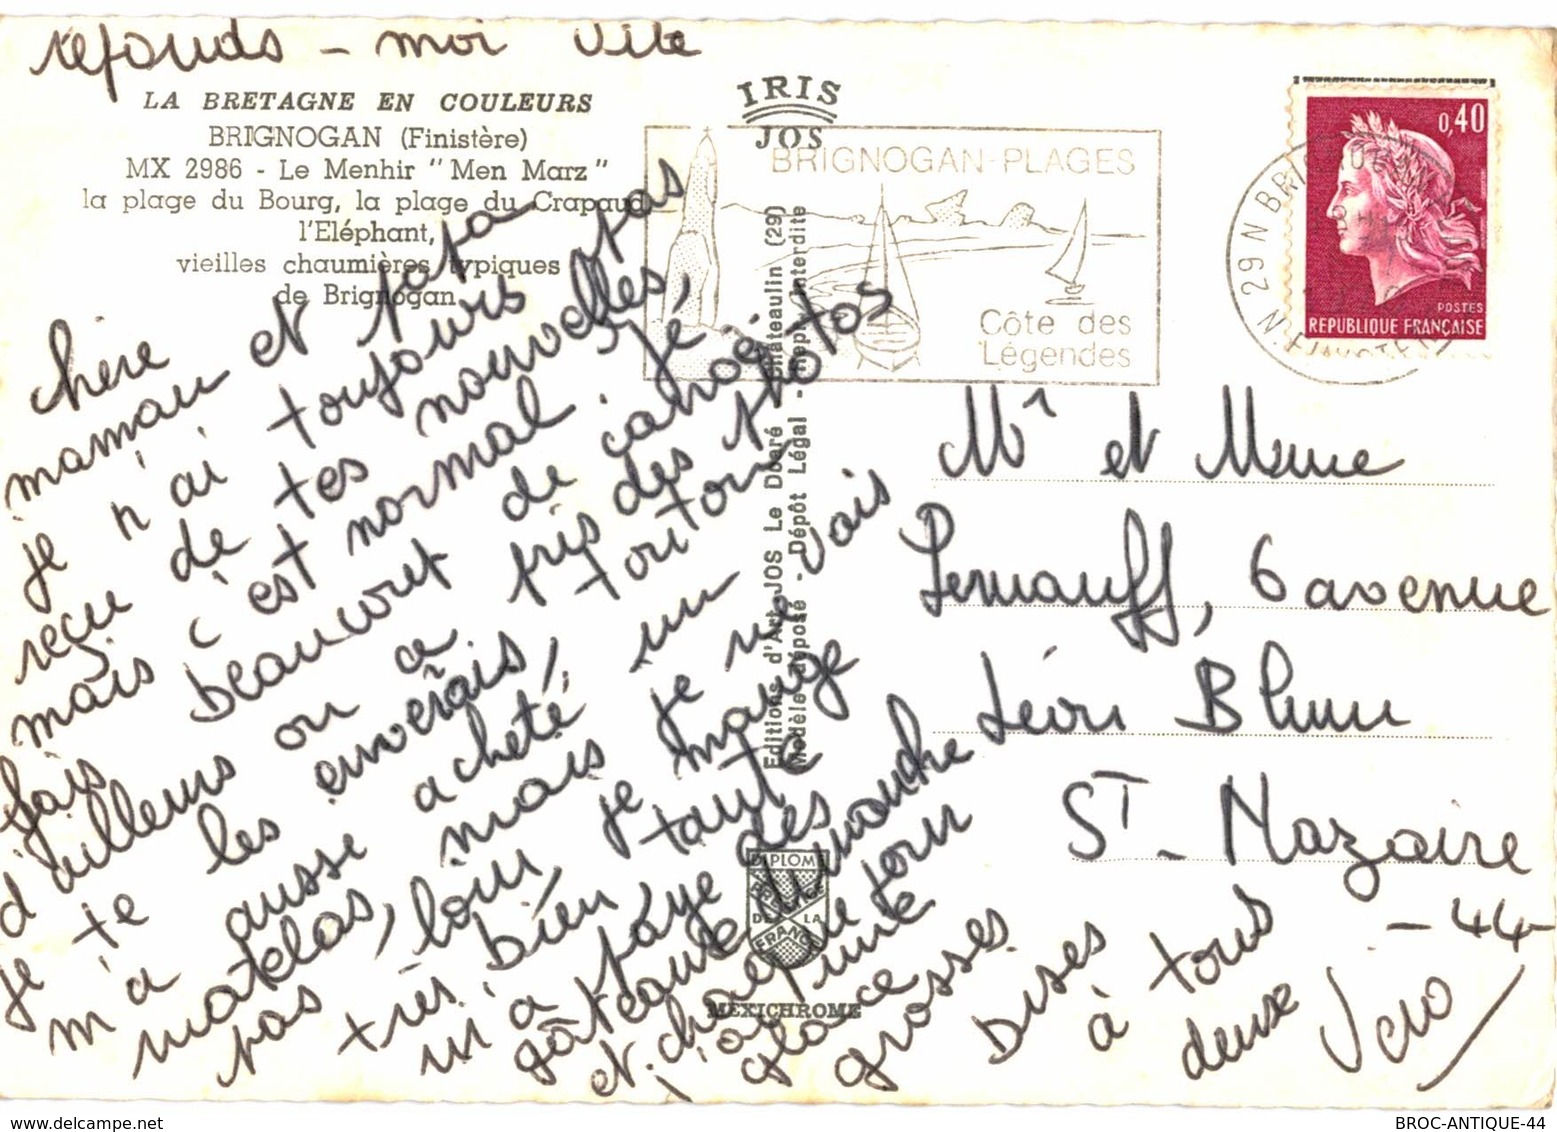 réponds - moi vite
LA BRETAGNE EN COULEURS
BRIGNOGAN (Finistère)
MX 2986 - Le Menhir "Men Marz"
la plage du Bourg, la plage du Crapaud
l'Eléphant,
vieilles chaumières typiques
de Brignogan
IRIS
JOS
BRIGNOGAN-PLAGES
Côte des
Légendes
29 N BRIGNOGAN
N. FINISTERE
0,40
POSTES
REPUBLIQUE FRANÇAISE
chère
maman et papa
je n'ai toujours pas
reçu de tes nouvelles,
mais c'est normal, je
fais beaucoup de canoë
d'ailleurs on a pris des photos
je te les enverais, toutou
m'a aussi acheté un
matelas, mais je ne vais
pas loin, je mange
très bien, tante
m'a payé des
gâteaux dimanche
et chaque jour
j'ai une
glace
grosses
bises
à tous
deux
Véro
Editions d'Art JOS Le Doaré - Châteaulin (29)
Modèle déposé - Dépôt Légal - Rep. Interdite
DIPLOME
DE LA
FRANCE
MEXICHROME
Mr et Mme
Pernauff, 6 avenue
Léon Blum
ST - Nazaire
- 44 -
BROC-ANTIQUE-44